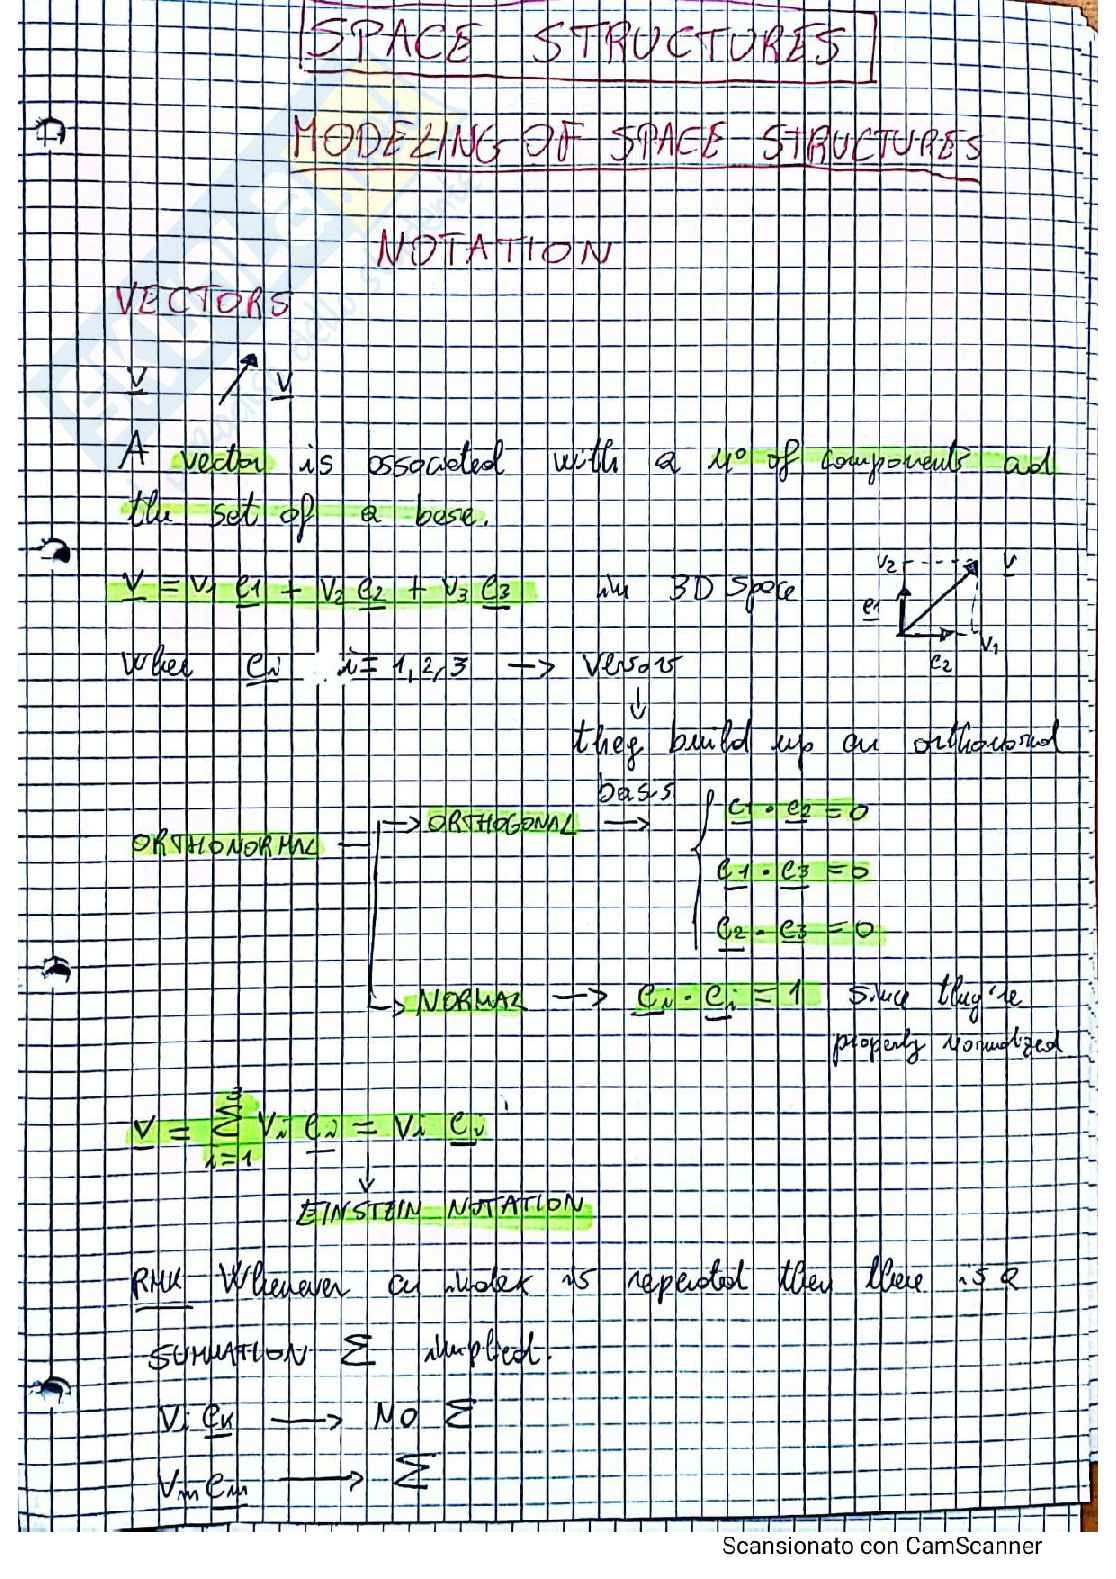 SPACE STRUCTURES
MODELING OF SPACE STRUCTURES
NOTATION
VECTORS
v v
A vector is associated with a n° of components ad
the set of a base.
v = v1 e1 + v2 e2 + v3 e3 in 3D space
v2 v
e1
v1
e2
Where ei i = 1,2,3 → versors
↓
they build up an orthonormal
basis
ORTHONORMAL → ORTHOGONAL → e1 · e2 = 0
e1 · e3 = 0
e2 · e3 = 0
→ NORMAL → ei · ei = 1 since they're
properly normalized
v = Σ vi ei = vi ei
3
i=1
↓
EINSTEIN NOTATION
RMK Whenever an index is repeated then there is a
SUMMATION Σ implied.
vi ek → NO Σ
vm em → Σ
Scansionato con CamScanner